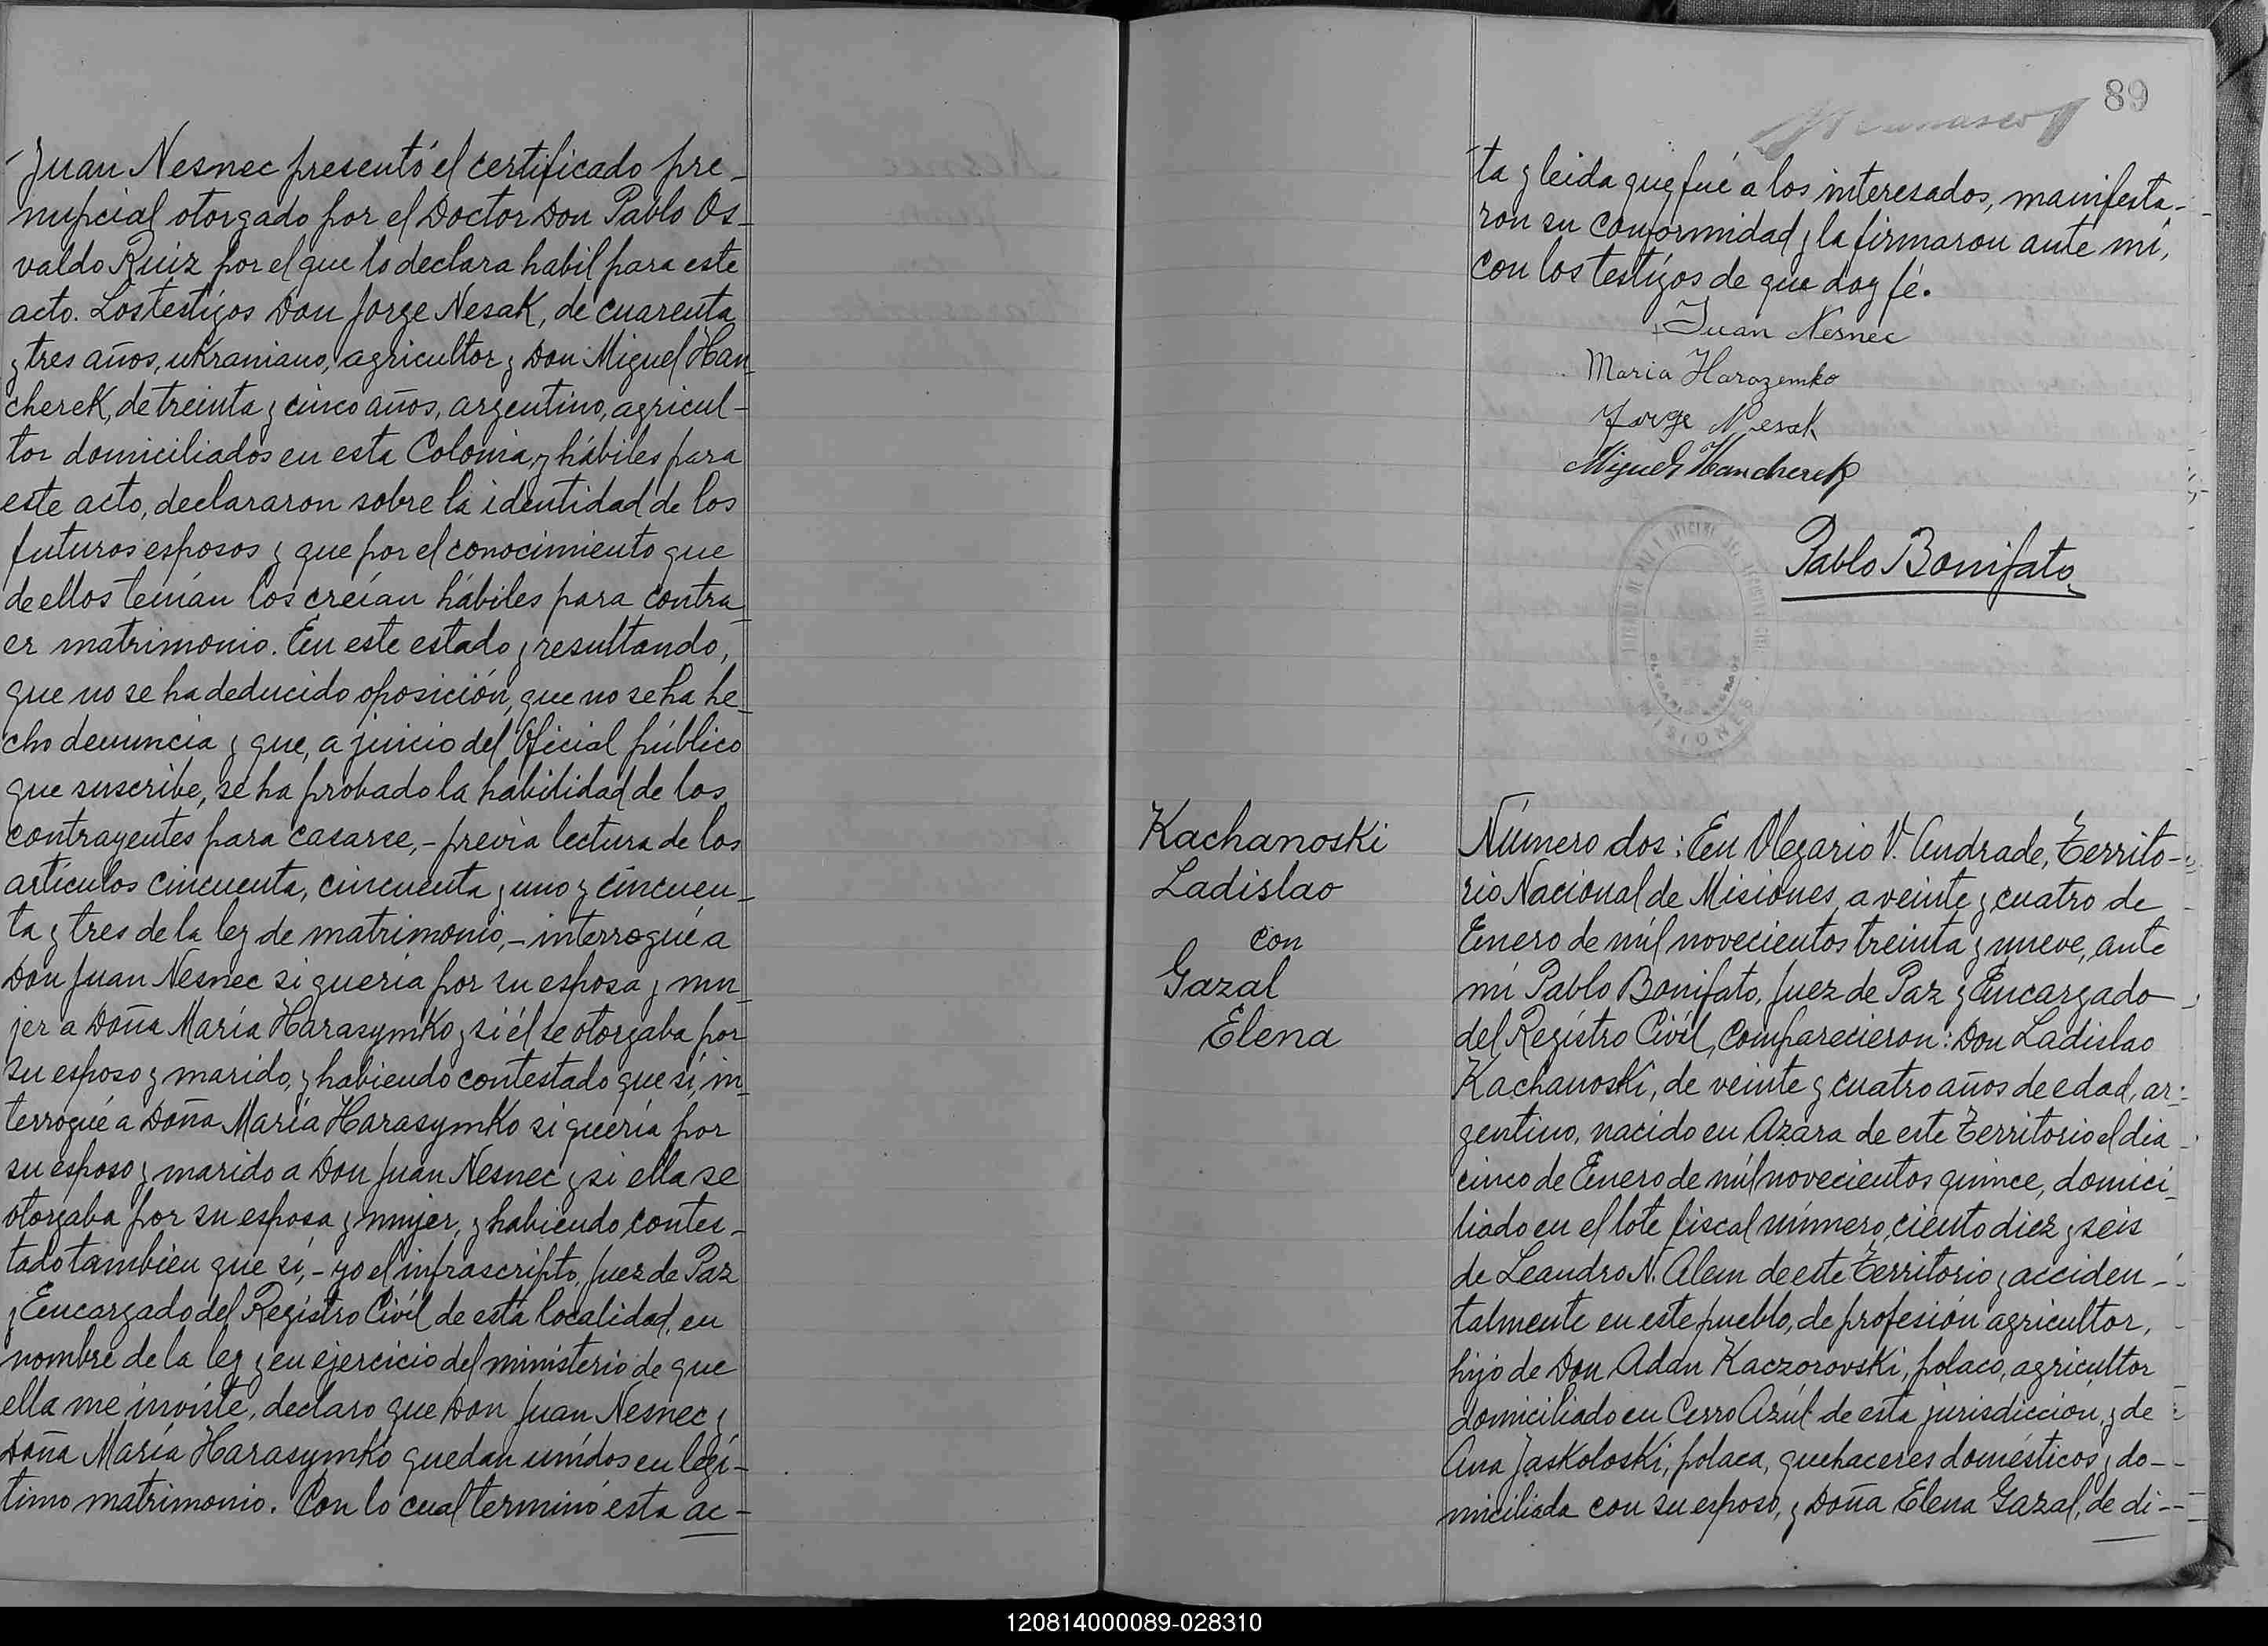 Juan Nesnec presentó el certificado pre-
nupcial otorgado por el Doctor Don Pablo Os-
valdo Ruiz por el que lo declara habil para este
acto. Los testigos Don Jorge Nesak, de cuarenta
y tres años, ukraniano, agricultor y Don Miguel Han-
cherek, de treinta y cinco años, argentino, agricul-
tor domiciliados en esta Colonia, y hábiles para
este acto, declararon sobre la identidad de los
futuros esposos y que por el conocimiento que
de ellos tenían los creían hábiles para contra-
er matrimonio. En este estado y resultando,
que no se ha deducido oposición, que no se ha he-
cho denuncia y que, a juicio del Oficial público
que suscribe, se ha probado la habilidad de los
contrayentes para casarse,- previa lectura de los
artículos cincuenta, cincuenta y uno y cincuen-
ta y tres de la ley de matrimonio,- interrogué a
Don Juan Nesnec si quería por su esposa y mu-
jer a Doña María Harasymko y si él se otorgaba por
su esposo y marido, y habiendo contestado que sí, in-
terrogué a Doña María Harasymko si quería por
su esposo y marido a Don Juan Nesnec y si ella se
otorgaba por su esposa y mujer, y habiendo contes-
tado tambien que sí,- yo el infrascripto, Juez de Paz
y Encargado del Registro Civil de esta localidad, en
nombre de la ley y en ejercicio del ministerio de que
ella me inviste, declaro que Don Juan Nesnec y
Doña María Harasymko quedan unidos en legí-
timo matrimonio. Con lo cual terminó esta ac-
89
ta y leida que fué a los interesados, manifesta-
ron su conformidad y la firmaron ante mí,
con los testigos de que doy fé.
Juan Nesnec
Maria Harazemko
Jorge Nesak
Miguel Hancherek
Pablo Bonifato
MISIONES
Kachanoski
Ladislao
con
Gazal
Elena
Número dos: En Olegario V. Andrade, Territo-
rio Nacional de Misiones, a veinte y cuatro de
Enero de mil novecientos treinta y nueve, ante
mí Pablo Bonifato, Juez de Paz y Encargado
del Registro Civil, comparecieron: Don Ladislao
Kachanoski, de veinte y cuatro años de edad, ar-
gentino, nacido en Azara de este Territorio el dia
cinco de Enero de mil novecientos quince, domici-
liado en el lote fiscal número, ciento diez y seis
de Leandro N. Alem de este Territorio y acciden-
talmente en este pueblo, de profesión agricultor,
hijo de Don Adan Kaczorovski, polaco, agricultor
domiciliado en Cerro Azúl de esta jurisdicción, y de
Ana Jaskoloski, polaca, quehaceres domésticos y do-
miciliada con su esposo, y Doña Elena Gazal, de di-
120814000089-028310